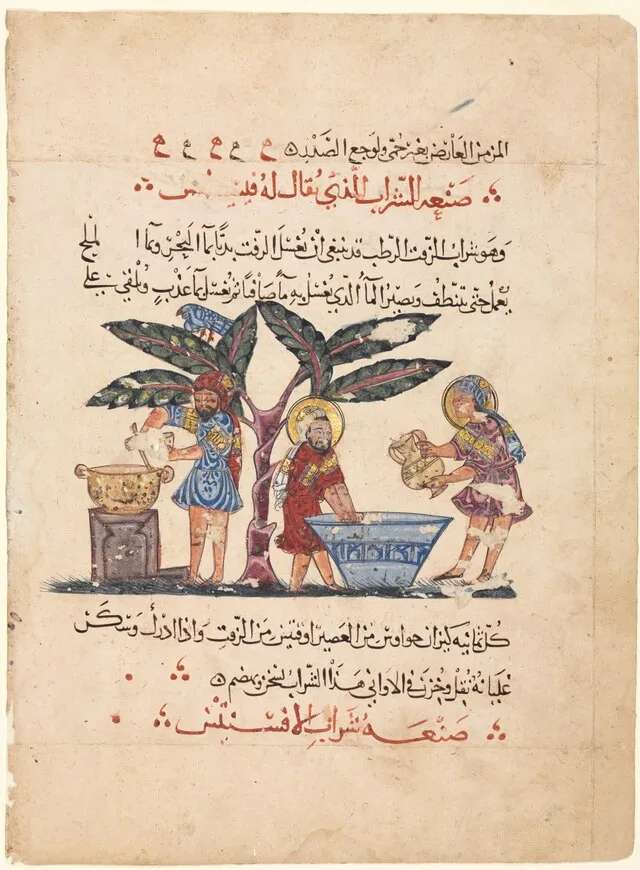 المزمن العارض بغير حمى ولوجع الصدر ه ه ه ه ه ه
صنعه الشراب الذي يقال له
وهو شراب الزفت الرطب قد ينبغي أن يغسل الزفت بدئا بماء البحر وبماء الملح
يعمل حتى يتنظف ويصير الماء الذي يغسل به ماء صافيا ثم يغسل بماء عذب ويلقى على
كل ثمانيه كيزان حواوس من العصير اوقيتين من الزفت واذا ادرك وسكن
غليانه ينقل ويخزن في الاواني هذا الشراب يسخن ويهضم ه
صنعه شراب الافسنتين